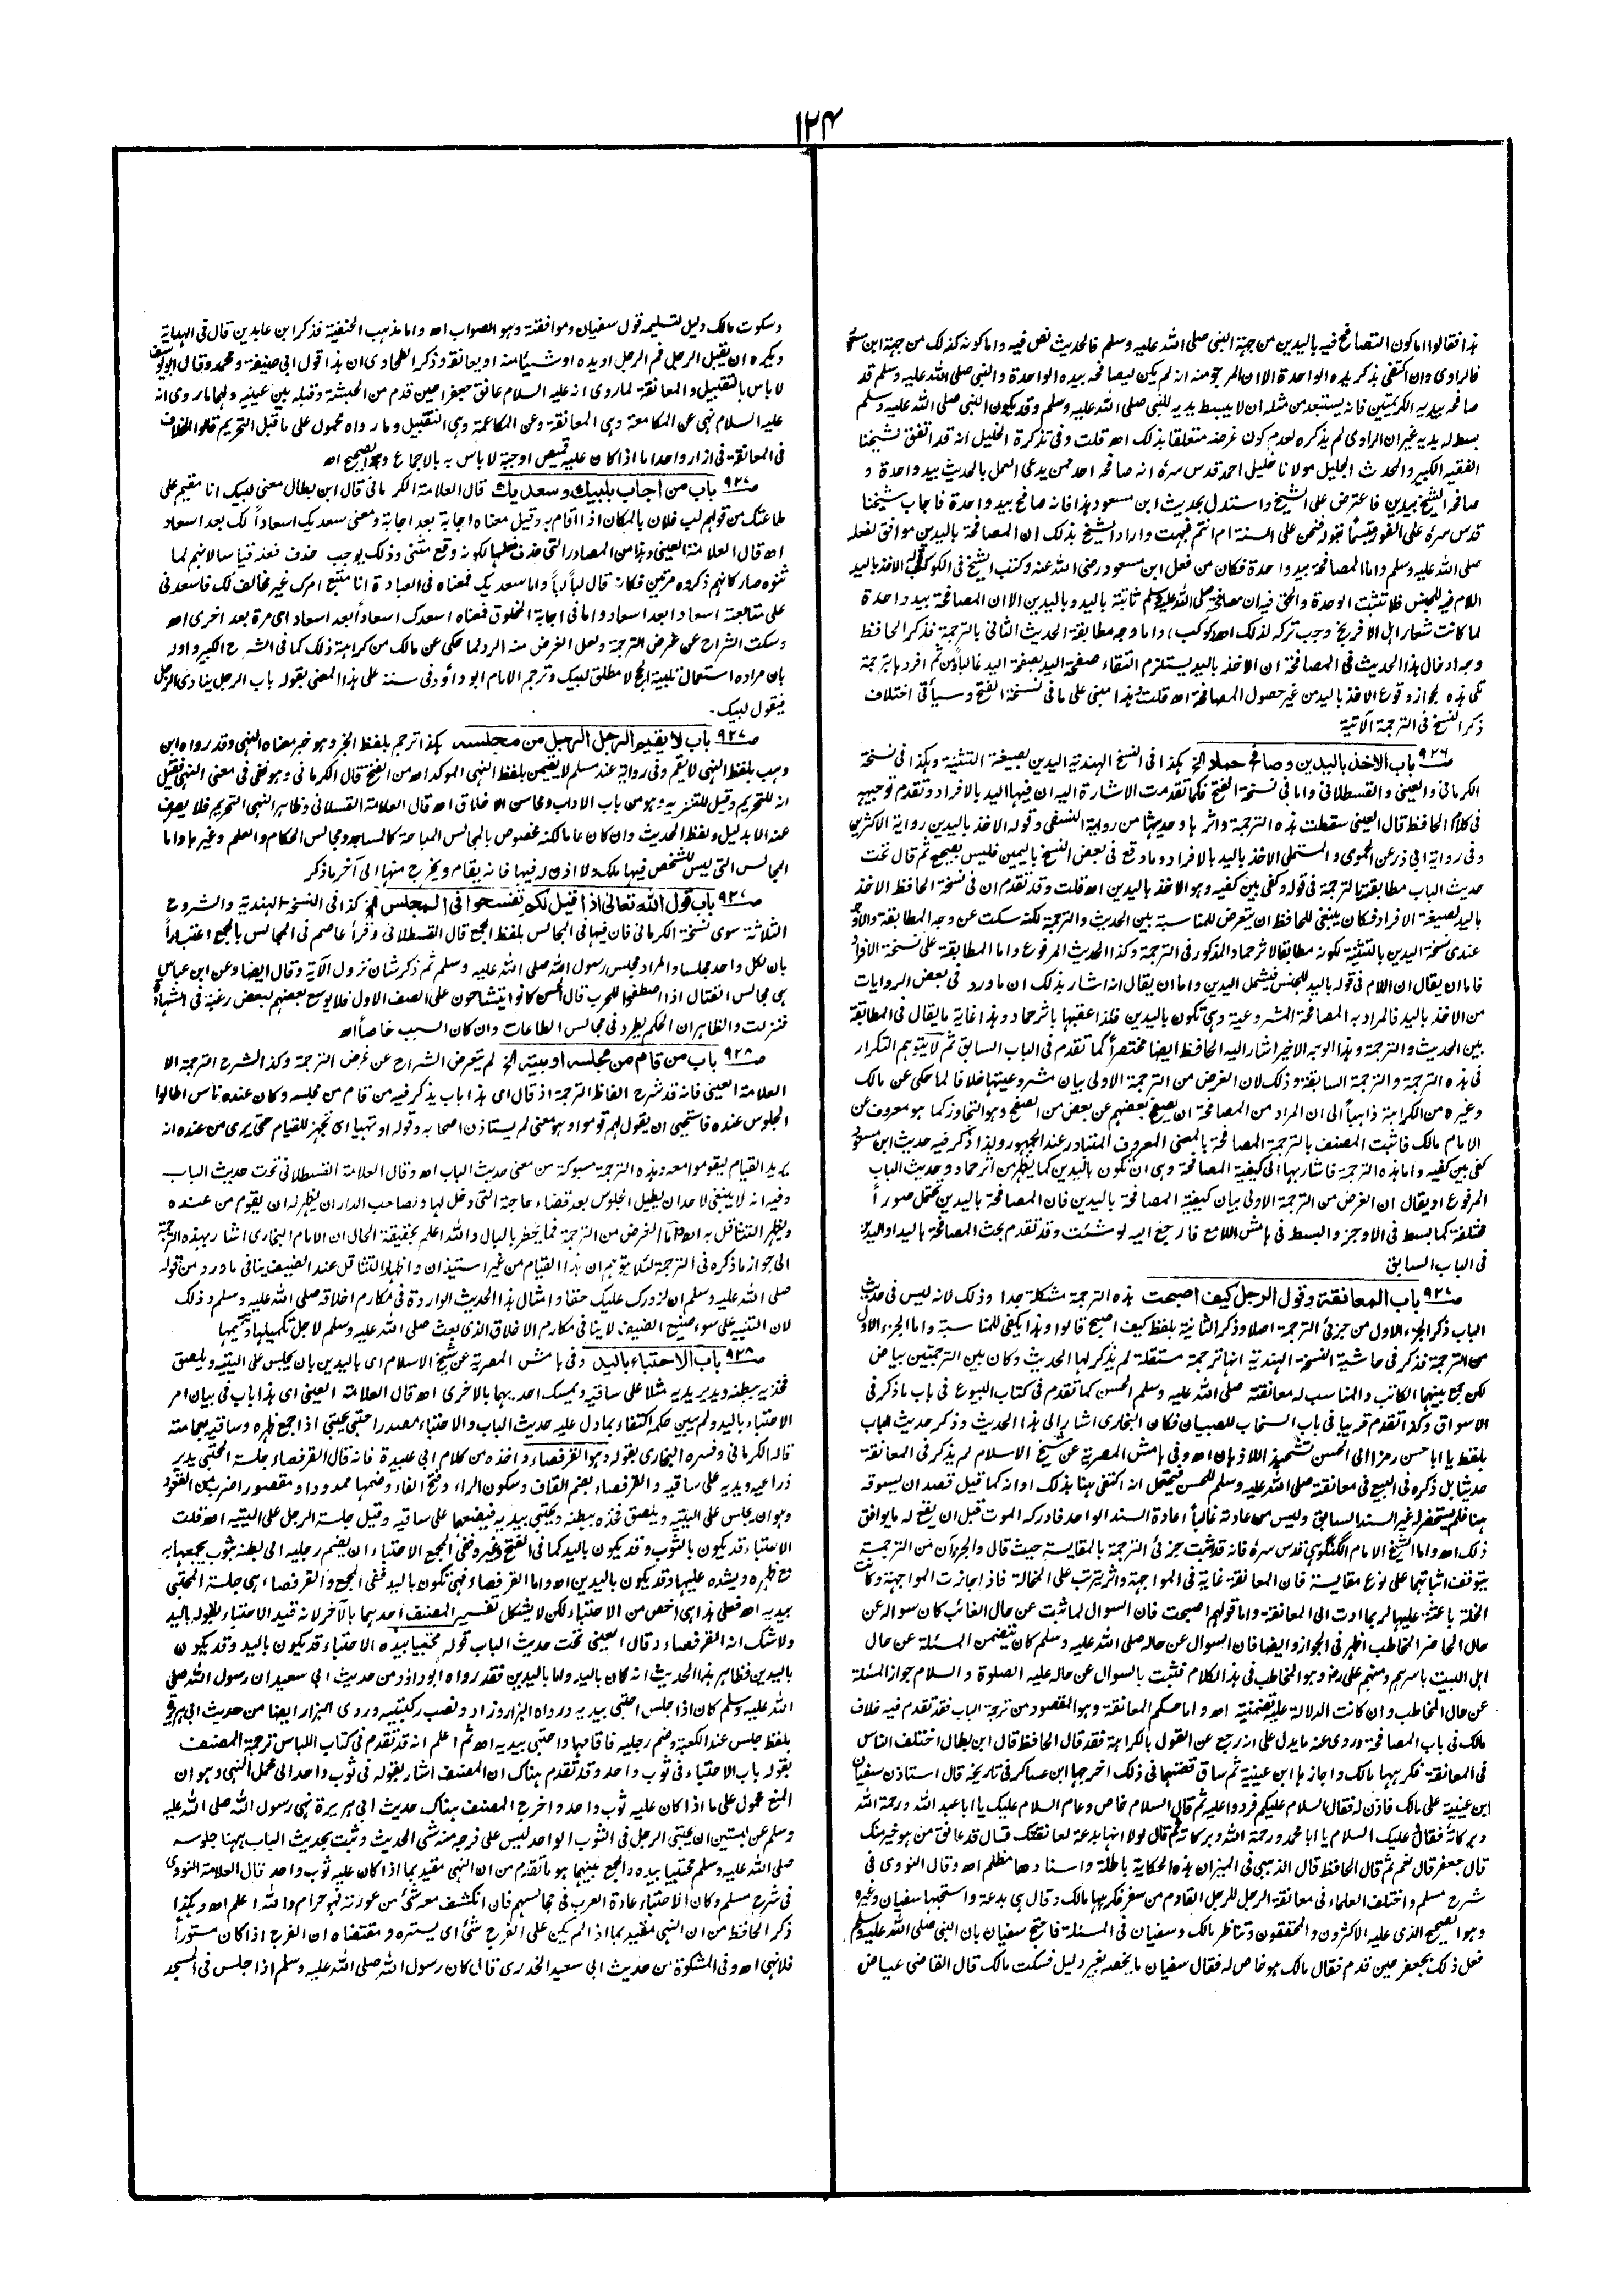 ١٢٤
هذا فقالوا اما كون التصافح فيه باليدين من جهة النبي صلى الله عليه وسلم فالحديث نص فيه واما كونه كذلك من جهة ابن مسعود
فالراوى وان اكتفى بذكر يده الواحدة الا ان المرجو منه انه لم يكن ليصافحه بيده الواحدة والنبي صلى الله عليه وسلم قد
صافحه بيديه الكريمتين فانه يستبعد من مثله ان لا يبسط يديه للنبي صلى الله عليه وسلم وقد يكون النبي صلى الله عليه وسلم
بسط له يديه غير ان الراوى لم يذكره لعدم كون غرضه متعلقا بذلك اه قلت وفى تذكرة الخليل انه قد اتفق لشيخنا
الفقيه الكبير والمحدث الجليل مولانا خليل احمد قدس سره انه صافحه احد ممن يدعى العمل بالحديث بيد واحدة و
صافحه الشيخ بيدين فاعترض على الشيخ واستدل بحديث ابن مسعود هذا فانه صافح بيد واحدة فاجاب شيخنا
قدس سره على الفور متبسما بقوله فنحن على السنة ام انتم فبهت واراد الشيخ بذلك ان المصافحة باليدين موافق لفعله
صلى الله عليه وسلم واما المصافحة بيد واحدة فكان من فعل ابن مسعود رضى الله عنه وكتب الشيخ فى الكوكب قوله الاخذ باليد
اللام فيه للجنس فلا تثبت الوحدة والحق فيه ان مصافحته صلى الله عليه وسلم ثابتة باليد وباليدين الا ان المصافحة بيد واحدة
لما كانت شعار اهل الافرنج وجب تركه لذلك اه (كوكب) واما وجه مطابقة الحديث الثانى بالترجمة فذكر الحافظ
وجه ادخال هذا الحديث فى المصافحة ان الاخذ باليد يستلزم التقاء صفحة اليد بصفحة اليد غالبا ومن ثم افردها بترجمة
تلى هذه لجواز وقوع الاخذ باليد من غير حصول المصافحة اه قلت وهذا مبنى على ما فى نسخة الفتح وسيأتى اختلاف
ذكر النسخ فى الترجمة الآتية
ص٩٢٦ باب الاخذ باليدين وصافح حماد الخ هكذا فى النسخ الهندية اليدين بصيغة التثنية وهكذا فى نسخة
الكرمانى والعينى والقسطلانى واما فى نسخة الفتح فكما تقدمت الاشارة اليه ان فيها اليد بالافراد وتقدم توجيهه
فى كلام الحافظ قال العينى سقطت هذه الترجمة واثرها وحديثها من رواية النسفى وقوله الاخذ باليدين رواية الاكثرين
وفى رواية ابى ذر عن الحموى والمستملى الاخذ باليد بالافراد وما وقع فى بعض النسخ باليمين فليس بصحيح ثم قال تحت
حديث الباب مطابقته بالترجمة فى قوله وكفى بين كفيه وهو الاخذ باليدين اه قلت وقد تقدم ان فى نسخة الحافظ الاخذ
باليد بصيغة الافراد فكان ينبغى للحافظ ان يتعرض للمناسبة بين الحديث والترجمة لكنه سكت عن وجه المطابقة والاوجه
عندى نسخة اليدين بالتثنية لكونه مطابقا لاثر حماد المذكور فى الترجمة وكذا الحديث المرفوع واما المطابقة على نسخة الافراد
فاما ان يقال ان اللام فى قوله باليد للجنس فيشمل اليدين واما ان يقال انه اشار بذلك ان ما ورد فى بعض الروايات
من الاخذ باليد فالمراد به المصافحة المشروعية وهى تكون باليدين فلذا عقبها باثر حماد وهذا غاية ما يقال فى المطابقة
بين الحديث والترجمة وهذا الوجه الاخير اشار اليه الحافظ ايضا مختصرا كما تقدم فى الباب السابق ثم لا يتوهم التكرار
فى هذه الترجمة والترجمة السابقة وذلك لان الغرض من الترجمة الاولى بيان مشروعيتها خلافا لما حكى عن مالك
وغيره من الكراهة ذاهبا الى ان المراد من المصافحة ان يصفح بعضهم عن بعض من الصفح وهو التجاوز كما هو معروف عن
الامام مالك فاثبت المصنف بالترجمة المصافحة بالمعنى المعروف المتبادر عند الجمهور ولذا ذكر فيه حديث ابن مسعود
كفى بين كفيه واما هذه الترجمة فاشار بها الى كيفية المصافحة وهى ان تكون باليدين كما يظهر من اثر حماد وحديث الباب
المرفوع او يقال ان الغرض من الترجمة الاولى بيان كيفية المصافحة باليدين فان المصافحة باليدين تحتمل صورا
مختلفة كما بسط فى الاوجز والبسط فى هامش اللامع فارجع اليه لو شئت وقد تقدم بحث المصافحة باليد او اليدين
فى الباب السابق
ص٩٢٧ باب المعانقة وقول الرجل كيف اصبحت هذه الترجمة مشكلة جدا وذلك لانه ليس فى حديث
الباب ذكر الجزء الاول من جزئى الترجمة اصلا وذكر الثانية بلفظ كيف اصبح قالوا وهذا يكفى للمناسبة واما الجزء الاول
من الترجمة فذكر فى حاشية النسخة الهندية انها ترجمة مستقلة لم يذكر لها الحديث وكان بين الترجمتين بياض
لكن جمع بينهما الكاتب والمناسب له معانقته صلى الله عليه وسلم الحسن كما تقدم فى كتاب البيوع فى باب ما ذكر فى
الاسواق وكذا تقدم قريبا فى باب السخاب للصبيان فكان البخارى اشار الى هذا الحديث وذكر حديث الباب
بلفظ يا ابا حسن رمزا الى الحسن تشحيذ اللاذهان اه وفى هامش المصرية عن شيخ الاسلام لم يذكر فى المعانقة
حديثا بل ذكره فى البيع فى معانقته صلى الله عليه وسلم للحسن فيحتمل انه اكتفى هنا بذلك او انه كما قيل قصد ان يسوقه
هنا فلم يستحضر له غير السند السابق وليس من عادته غالبا اعادة السند الواحد فادركه الموت قبل ان يقع له ما يوافق
ذلك اه واما الشيخ الامام الگنگوهى قدس سره فانه قد اثبت جزئى الترجمة بالمقايسة حيث قال والجزآن من الترجمة
يتوقف اثباتهما على نوع مقايسة فان المعانقة غاية فى المواجهة واثر يترتب على المخالة فاذا جازت المواجهة وكانت
الخلة باعثة عليها لربما ادت الى المعانقة واما قولهم اصبحت فان السوال لما ثبت عن حال الغائب كان سواله عن
حال الحاضر المخاطب اظهر فى الجواز وايضا فان السوال عن حاله صلى الله عليه وسلم كان يتضمن المسئلة عن حال
اهل البيت باسرهم ومنهم على رضى وهو المخاطب فى هذا الكلام فثبت بالسوال عن حاله عليه الصلوة والسلام جواز المسئلة
عن حال المخاطب وان كانت الدلالة عليه تضمنية اه واما حكم المعانقة وهو المقصود من ترجمة الباب فقد تقدم فيه خلاف
مالك فى باب المصافحة وروى عنه ما يدل على انه رجع عن القول بالكراهة فقد قال الحافظ قال ابن بطال اختلف الناس
فى المعانقة فكرهها مالك واجازها ابن عيينة ثم ساق قصتهما فى ذلك اخرجها ابن عساكر فى تاريخه قال استاذن سفيان
ابن عيينة على مالك فاذن له فقال السلام عليكم فردوا عليه ثم قال السلام خاص وعام السلام عليك يا ابا عبد الله ورحمة الله
وبركاته فقال وعليك السلام يا ابا محمد ورحمة الله وبركاته ثم قال لولا انها بدعة لعانقتك قال قد عانق من هو خير منك
قال جعفر قال نعم ثم قال الحافظ قال الذهبى فى الميزان هذه الحكاية باطلة واسنادها مظلم اه وقال النووى فى
شرح مسلم واختلف العلماء فى معانقة الرجل للرجل القادم من سفر فكرهها مالك وقال هى بدعة واستحبها سفيان وغيره
وهو الصحيح الذى عليه الاكثرون والمحققون وتناظر مالك وسفيان فى المسئلة فاحتج سفيان بان النبي صلى الله عليه وسلم
فعل ذلك بجعفر حين قدم فقال مالك هو خاص له فقال سفيان ما يخصه بغير دليل فسكت مالك قال القاضى عياض
وسكوت مالك دليل لتسليمه قول سفيان وموافقته وهو الصواب اه واما مذهب الحنفية فذكر ابن عابدين قال فى الهداية
ويكره ان يقبل الرجل فم الرجل او يده او شيئا منه او يعانقه وذكر الطحاوى ان هذا قول ابى حنيفة ومحمد وقال ابو يوسف
لا باس بالتقبيل والمعانقة لما روى انه عليه السلام عانق جعفرا حين قدم من الحبشة وقبله بين عينيه ولهما ما روى انه
عليه السلام نهى عن المكامعة وهى المعانقة وعن المكاعمة وهى التقبيل وما رواه محمول على ما قبل التحريم قالوا الخلاف
فى المعانقة فى ازار واحد اما اذا كان عليه قميص او جبة لا باس به بالاجماع وهو الصحيح اه
ص٩٢٧ باب من اجاب بلبيك وسعديك قال العلامة الكرمانى قال ابن بطال معنى لبيك انا مقيم على
طاعتك من قولهم لب فلان بالمكان اذا اقام به وقيل معناه اجابة بعد اجابة ومعنى سعديك اسعادا لك بعد اسعاد
اه قال العلامة العينى وهذا من المصادر التى حذف فعلها لكونه وقع مثنى وذلك يوجب حذف فعله قياسا لانهم لما
ثنوه صار كانهم ذكروه مرتين فكانه قال لبا لبا واما سعديك فمعناه فى العبادة انا متبع امرك غير مخالف لك فاسعدنى
على متابعته اسعادا بعد اسعاد واما فى اجابة المخلوق فمعناه اسعدك اسعادا بعد اسعاد اى مرة بعد اخرى اه
وسكت الشراح عن غرض الترجمة ولعل الغرض منه الرد لما حكى عن مالك من كراهة ذلك كما فى الشرح الكبير واوله
بان مراده استعمال تلبية الحج لا مطلق لبيك وترجم الامام ابو داؤد فى سننه على هذا المعنى بقوله باب الرجل ينادى الرجل
فيقول لبيك۔
ص٩٢٧ باب لا يقيم الرجل الرجل من مجلسه هكذا ترجم بلفظ الخبر وهو خبر معناه النهى وقد رواه ابن
وهب بلفظ النهى لا يقم وفى رواية عند مسلم لا يقيمن بلفظ النهى المؤكد اه من الفتح قال الكرمانى وهو نفى فى معنى النهى فقيل
انه للتحريم وقيل للتنزيه وهو من باب الآداب ومحاسن الاخلاق اه قال العلامة القسطلانى وظاهر النهى التحريم فلا يصرف
عنه الا بدليل ولفظ الحديث وان كان عاما لكنه مخصوص بالمجالس المباحة كالمساجد ومجالس الحكام والعلم وغيرها واما
المجالس التى ليس للشخص فيها ملك ولا اذن له فيها فانه يقام ويخرج منها الى آخر ما ذكر
ص٩٢٧ باب قول الله تعالى اذا قيل لكم تفسحوا فى المجلس الخ كذا فى النسخة الهندية والشروح
الثلاثة سوى نسخة الكرمانى فان فيها فى المجالس بلفظ الجمع قال القسطلانى وقرأ عاصم فى المجالس بالجمع اعتبارا
بان لكل واحد مجلسا والمراد مجلس رسول الله صلى الله عليه وسلم ثم ذكر شان نزول الآية وقال ايضا وعن ابن عباس
هى مجالس القتال اذا اصطفوا للحرب قال الحسن كانوا يتشاحون على الصف الاول فلا يوسع بعضهم لبعض رغبة فى الشهادة
فنزلت والظاهر ان الحكم يطرد فى مجالس الطاعات وان كان السبب خاصا اه
ص٩٢٨ باب من قام من مجلسه او بيته الخ لم يتعرض الشراح عن غرض الترجمة وكذا لشرح الترجمة الا
العلامة العينى فانه قد شرح الفاظ الترجمة اذ قال اى هذا باب يذكر فيه من قام من مجلسه وكان عنده ناس اطالوا
الجلوس عنده فاستحيى ان يقول لهم قوموا وهو معنى لم يستاذن اصحابه وقوله او تهيا اى تجهز للقيام حتى يرى من عنده انه
يريد القيام ليقوموا معه وهذه الترجمة مسبوكة من معنى حديث الباب اه وقال العلامة القسطلانى تحت حديث الباب
وفيه انه لا ينبغى لاحد ان يطيل الجلوس بعد قضاء حاجة التى دخل لها ولصاحب الدار ان يظهر له ان يقوم من عنده
ويظهر التثاقل به اه واما الغرض من الترجمة فما يخطر بالبال والله اعلم بحقيقة الحال ان الامام البخارى اشار بهذه الترجمة
الى جواز ما ذكره فى الترجمة لئلا يتوهم ان هذا القيام من غير استيذان واظهار التثاقل عند الضيف ينافى ما ورد من قوله
صلى الله عليه وسلم ان لزورك عليك حقا وامثال هذا الحديث الواردة فى مكارم اخلاقه صلى الله عليه وسلم وذلك
لان التنبيه على سوء صنيع الضيف لا ينافى مكارم الاخلاق الذى بعث صلى الله عليه وسلم لاجل تكميلها وتتميمها
ص٩٢٨ باب الاحتباء باليد وفى هامش المصرية عن شيخ الاسلام اى باليدين بان يجلس على اليتيه ويلصق
فخذيه ببطنه ويدير يديه مثلا على ساقيه ويمسك احديهما بالاخرى اه قال العلامة العينى اى هذا باب فى بيان امر
الاحتباء باليد ولم يبين حكمه اكتفاء بما دل عليه حديث الباب والاحتباء مصدر احتبى يحتبى اذا جمع ظهره وساقيه بعمامته
قاله الكرمانى وفسره البخارى بقوله وهو القرفصاء واخذه من كلام ابى عبيدة فانه قال القرفصاء جلسة المحتبى يدير
ذراعيه ويديه على ساقيه والقرفصاء بضم القاف وسكون الراء وفتح الفاء وضمها ممدودا ومقصورا ضرب من القعود
وهو ان يجلس على اليتيه ويلصق فخذه ببطنه ويحتبى بيديه فيضعهما على ساقيه وقيل جلسة الرجل على اليتيه اه قلت
الاحتباء قد يكون بالثوب وقد يكون باليد كما فى الفتح وغيره وفى المجمع الاحتباء ان يضم رجليه الى بطنه بثوب يجمعها به
مع ظهره ويشده عليها وقد يكون باليدين اه واما القرفصاء فهى تكون باليد ففى المجمع والقرفصاء هى جلسة المحتبى
بيديه اه فعلى هذا هى اخص من الاحتباء لكن لا يشكل تفسير المصنف احدهما بالآخر لانه قيد الاحتباء بقوله باليد
ولاشك انه القرفصاء وقال العينى تحت حديث الباب قوله محتبيا بيده الاحتباء قد يكون باليد وقد يكون
باليدين فظاهر هذا الحديث انه كان باليد واما باليدين فقد رواه ابو داؤد من حديث ابى سعيد ان رسول الله صلى
الله عليه وسلم كان اذا جلس احتبى بيديه ورواه البزار وزاد ونصب ركبتيه وروى البزار ايضا من حديث ابى هريرة
بلفظ جلس عند الكعبة وضم رجليه فاقامها واحتبى بيديه اه ثم اعلم انه قد تقدم فى كتاب اللباس ترجمة المصنف
بقوله باب الاحتباء فى ثوب واحد وقد تقدم هناك ان المصنف اشار بقوله فى ثوب واحد الى محمل النهى وهو ان
المنع محمول على ما اذا كان عليه ثوب واحد واخرج المصنف هناك حديث ابى هريرة نهى رسول الله صلى الله عليه
وسلم عن لبستين ان يحتبى الرجل فى الثوب الواحد ليس على فرجه منه شئ الحديث وثبت بحديث الباب ههنا جلوسه
صلى الله عليه وسلم محتبيا بيده والجمع بينهما هو ما تقدم من ان النهى مقيد بما اذا كان عليه ثوب واحد قال العلامة النووى
فى شرح مسلم وكان الاحتباء عادة العرب فى مجالسهم فان انكشف معه شئ من عورته فهو حرام والله اعلم اه وهكذا
ذكر الحافظ من ان النهى مقيد بما اذا لم يكن على الفرج شئ اى يستره ومقتضاه ان الفرج اذا كان مستورا
فلا نهى اه وفى المشكوة من حديث ابى سعيد الخدرى قال كان رسول الله صلى الله عليه وسلم اذا جلس فى المسجد